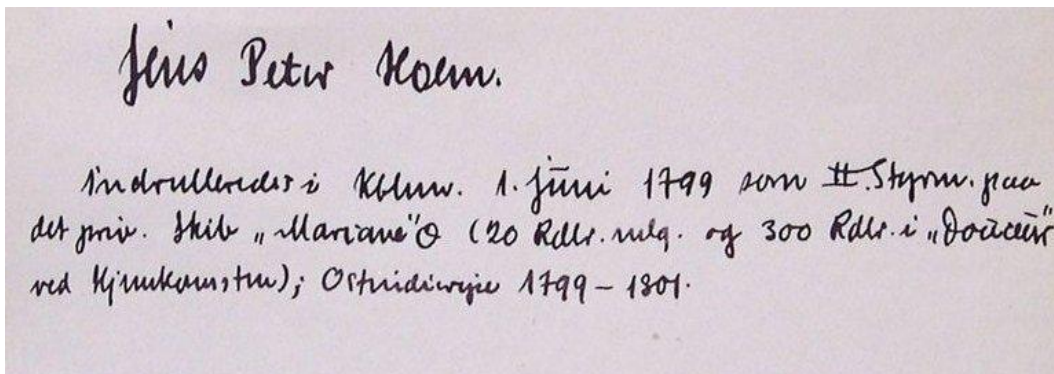 Jens Peter Holm.
Indrulleredes i Kbhvn. 1. Juni 1799 som II. Styrm. paa
det priv. Skib „Mariane" (20 Rdlr. mlg. og 300 Rdlr. i „Douceur"
ved Hjemkomsten); Ostindierejse 1799 – 1801.